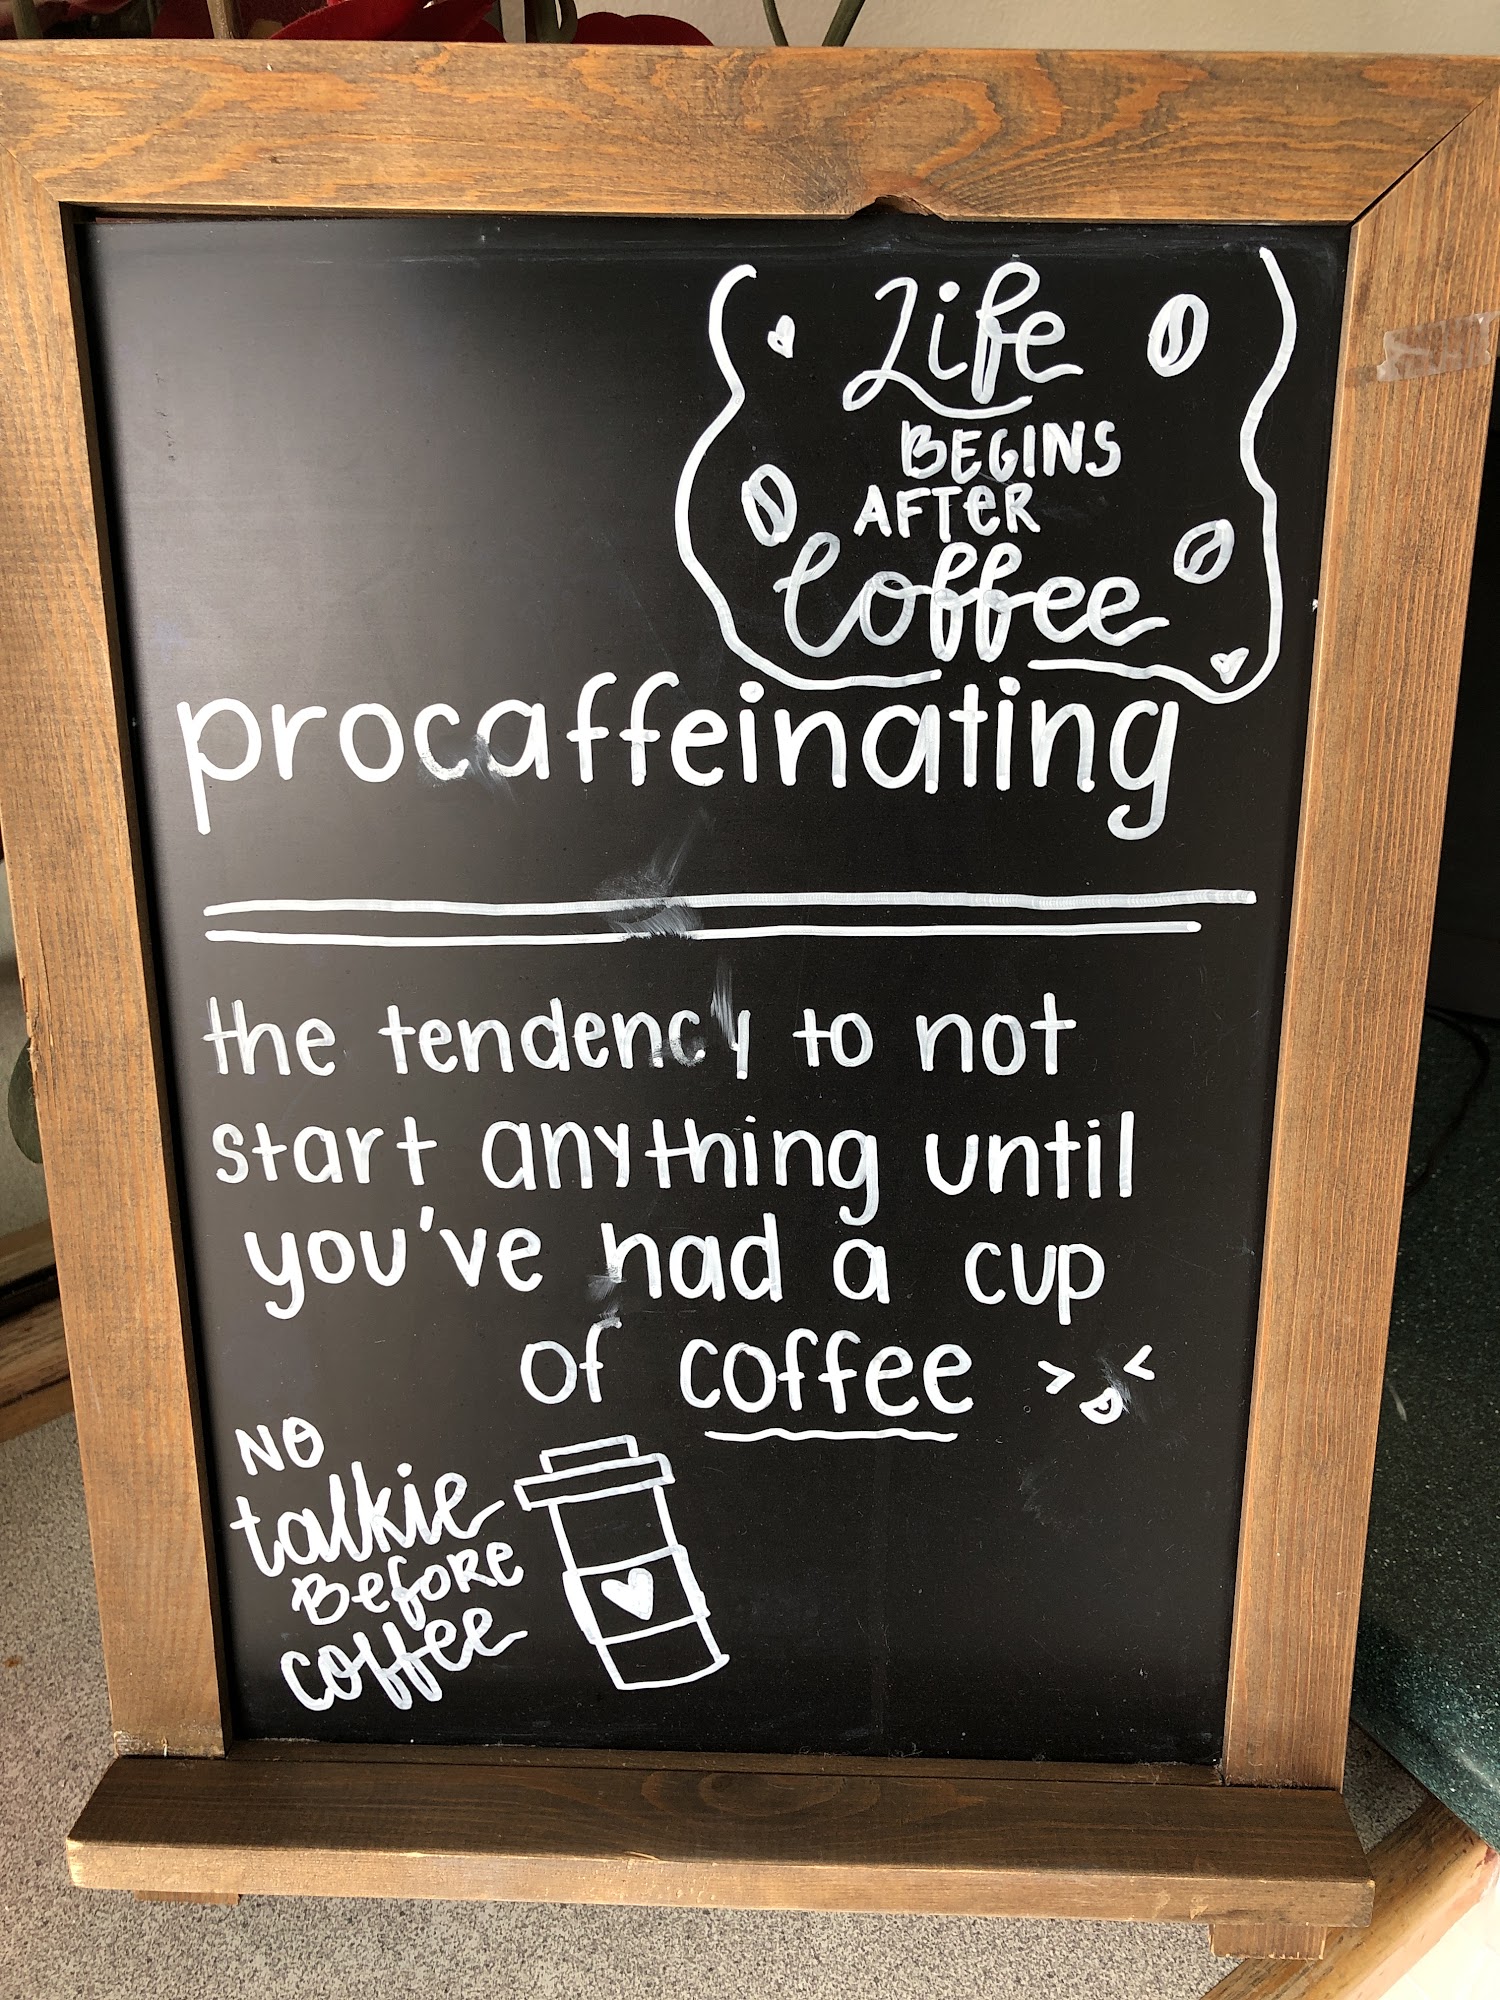 Life
BEGINS
AFTER
Coffee
procaffeinating
the tendency to not
start anything until
you've had a cup
of coffee
NO
talkie
BEfORE
coffee